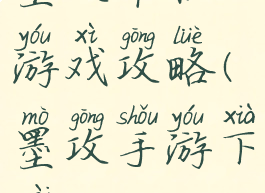 yóu xì gōng lüè
游戏攻略(
mò gōng shǒu yóu xià
墨攻手游下